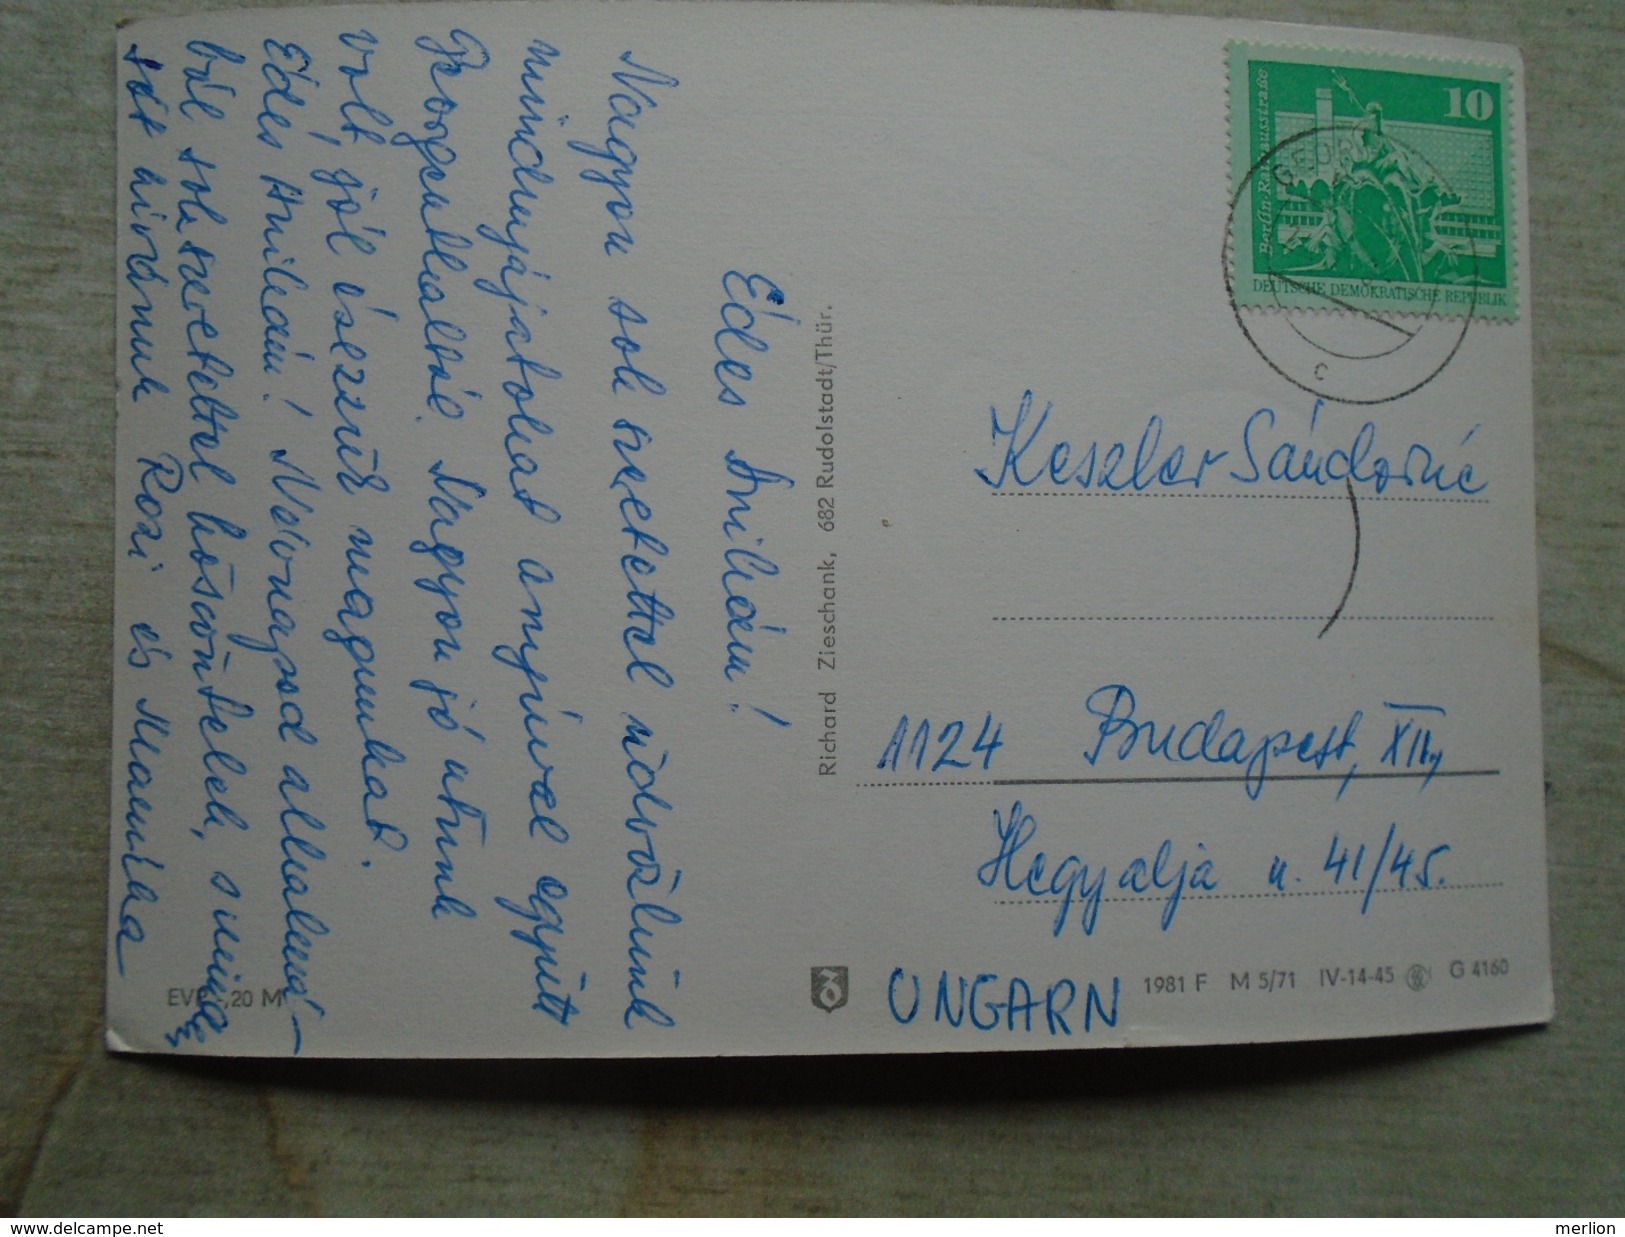 Édes Anikám!
Nagyon sok szeretettel üdvözlünk
mindnyájatokat anyuval együtt
Georgenthalból. Nagyon jó utunk
volt, jól érezzük magunkat.
Édes Anikám! Névnapod alkalmá-
ból sok szeretettel köszöntelek, s minden
jót kívánunk Rozi és Mamika
EVP 0,20 M
Richard Zieschank, 682 Rudolstadt/Thür.
10
Berlin-Rathausstraße
DEUTSCHE DEMOKRATISCHE REPUBLIK
c
Keszler Sándorné
1124 Budapest, XII.,
Hegyalja u. 41/45.
UNGARN
1981 F M 5/71 IV-14-45 G 4160
www.delcampe.net
merlion